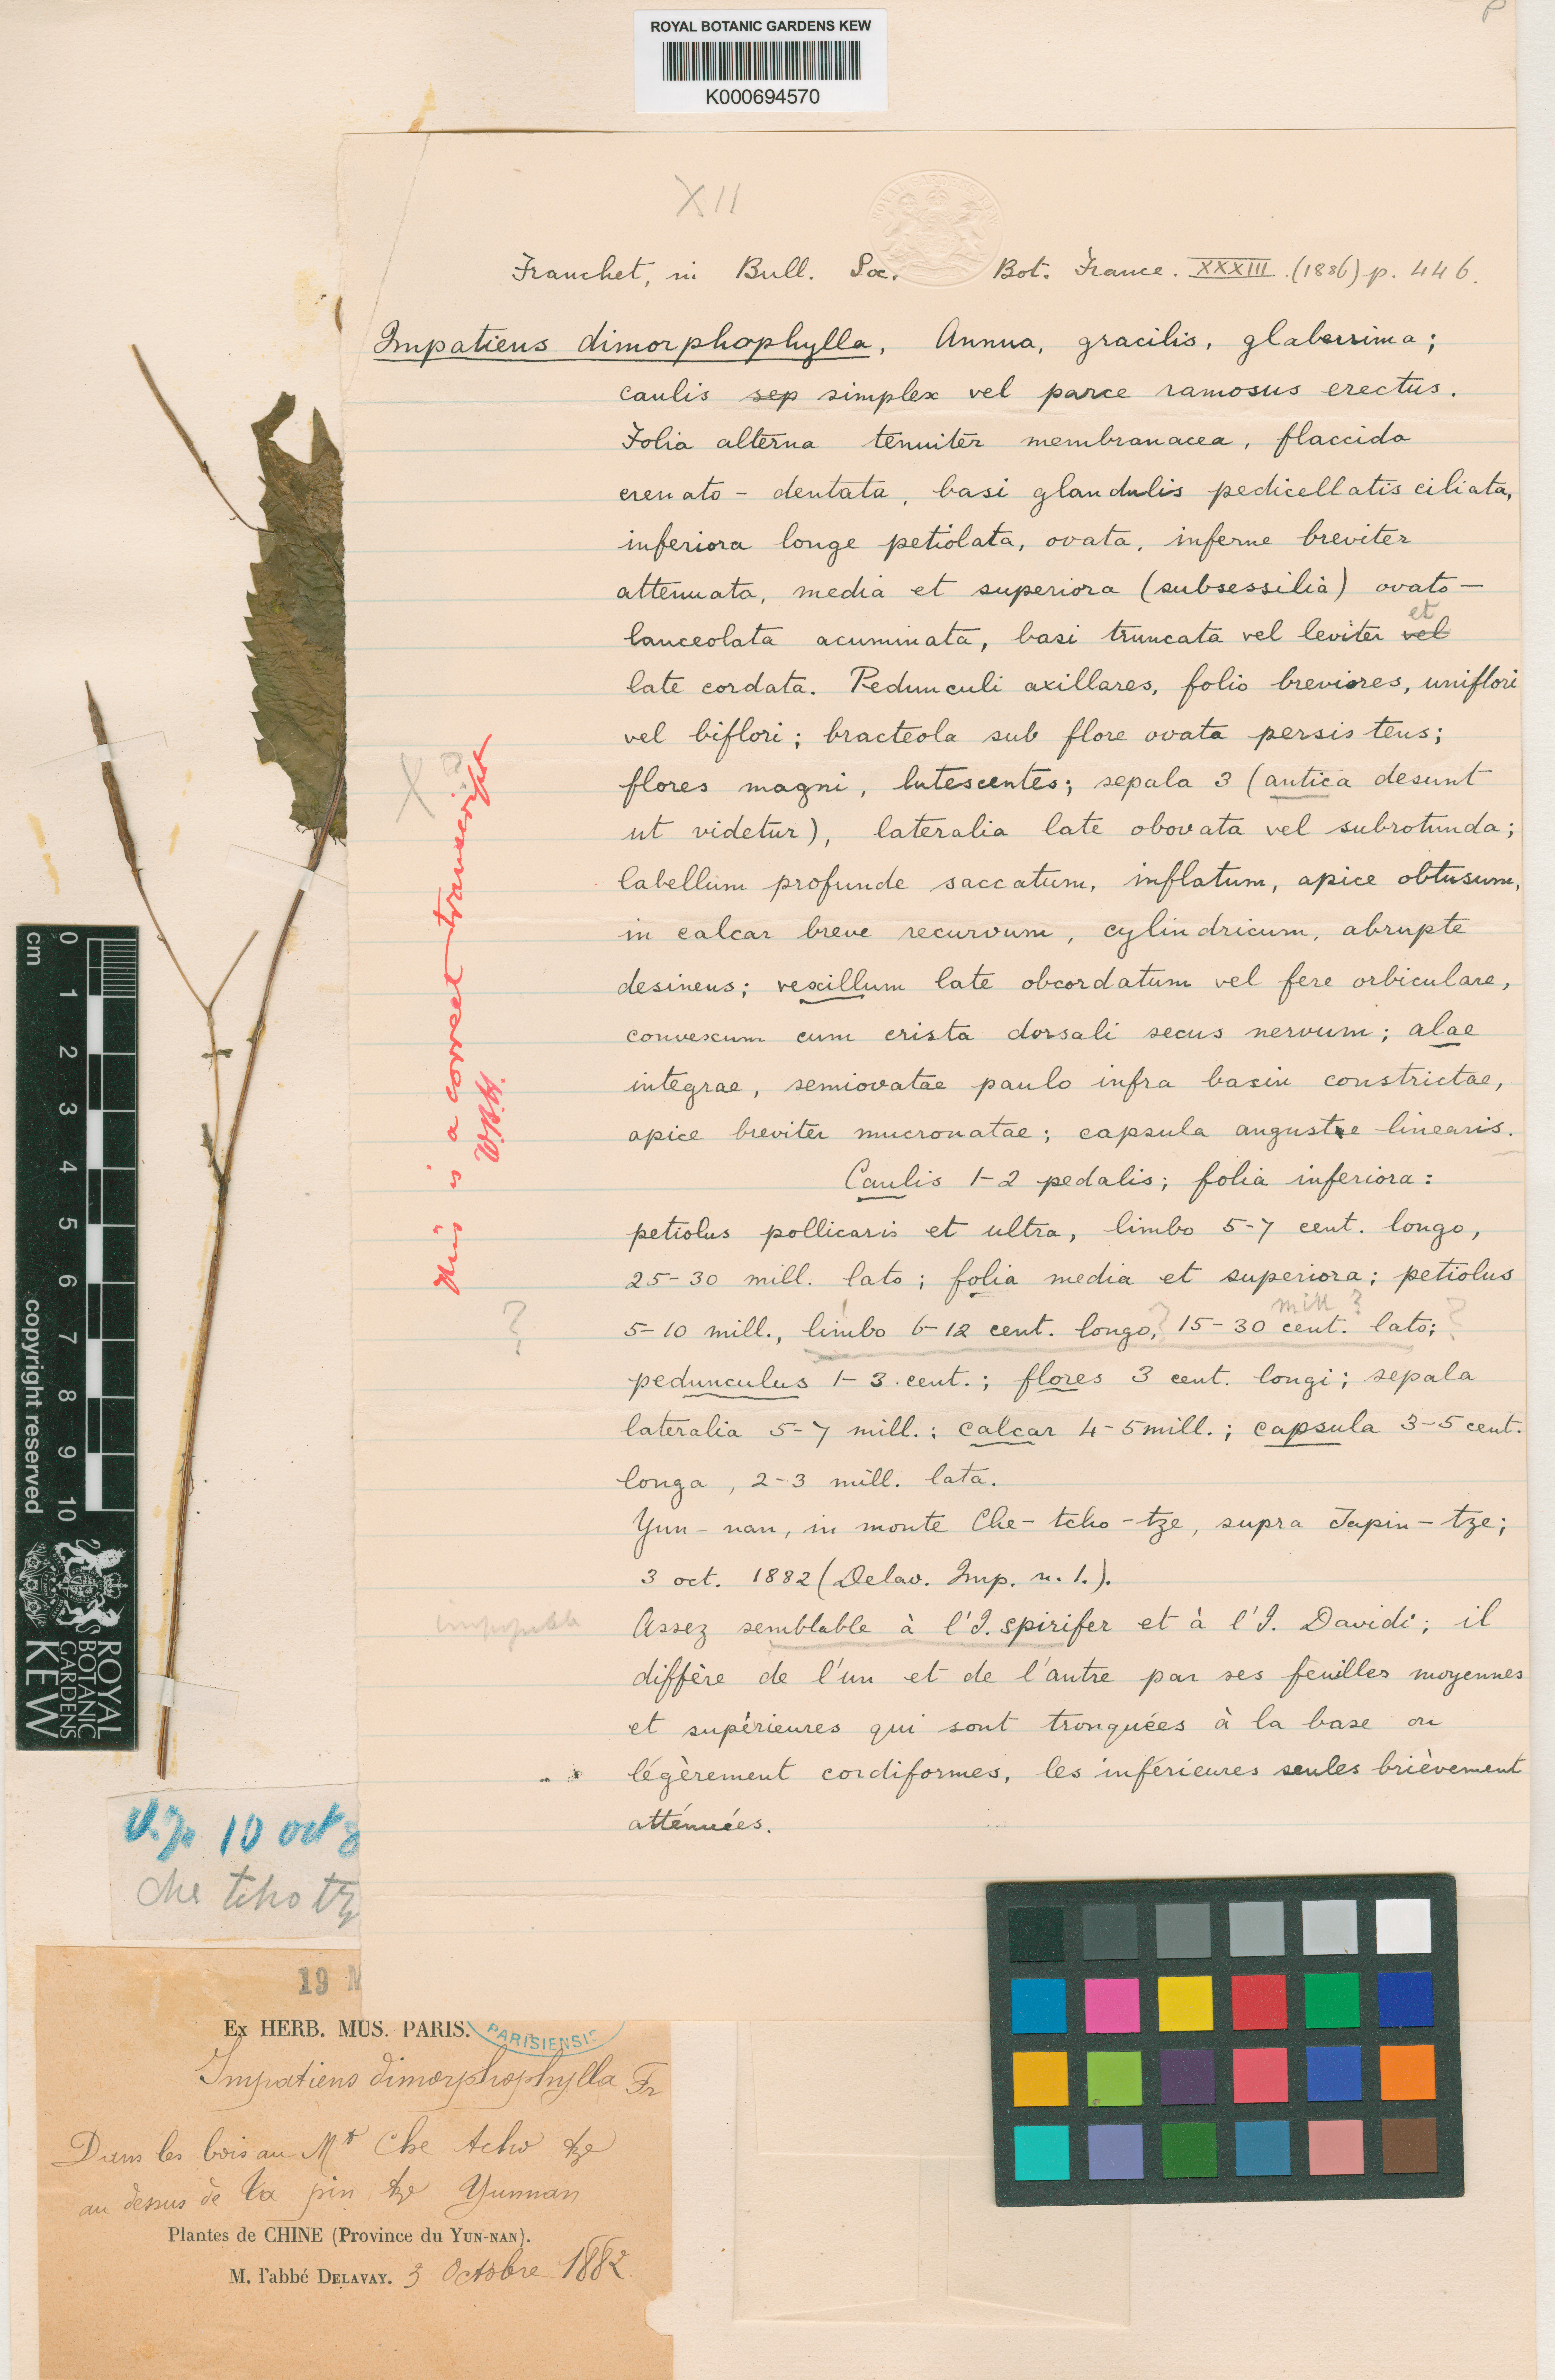 P
ROYAL BOTANIC GARDENS KEW
K000694570
XII
Franchet, in Bull. Soc. Bot. France. XXXIII. (1886) p. 446.
Impatiens dimorphophylla, Annua, gracilis, glaberrima;
caulis sep simplex vel parce ramosus erectus.
Folia alterna tenuiter membranacea, flaccida
crenato - dentata, basi glandulis pedicellatis ciliata,
inferiora longe petiolata, ovata, inferne breviter
attenuata, media et superiora (subsessilia) ovato-
lanceolata acuminata, basi truncata vel leviter vel et
late cordata. Pedunculi axillares, folio breviores, uniflori
vel biflori; bracteola sub flore ovata persistens;
flores magni, lutescentes; sepala 3 (antica desunt
ut videtur), lateralia late obovata vel subrotunda;
labellum profunde saccatum, inflatum, apice obtusum,
in calcar breve recurvum, cylindricum, abrupte
desinens; vexillum late obcordatum vel fere orbiculare,
convexum cum crista dorsali secus nervum; alae
integrae, semiovatae paulo infra basin constrictae,
apice breviter mucronatae; capsula anguste linearis.
Caulis 1-2 pedalis; folia inferiora:
petiolus pollicaris et ultra, limbo 5-7 cent. longo,
25-30 mill. lato; folia media et superiora; petiolus
mill ?
? 5-10 mill., limbo 6-12 cent. longo, ? 15-30 cent. lato; ?
pedunculus 1-3 cent.; flores 3 cent. longi; sepala
lateralia 5-7 mill.; calcar 4-5 mill.; capsula 3-5 cent.
longa, 2-3 mill. lata.
Yun-nan, in monte Che-tcho-tze, supra Tapin-tze;
3 oct. 1882 (Delav. Imp. n. 1.).
Assez semblable à l'I. spirifer et à l'I. Davidi; il
diffère de l'un et de l'autre par ses feuilles moyennes
et supérieures qui sont tronquées à la base ou
légèrement cordiformes, les inférieures seules brièvement
atténuées.
X ?
This is a correct transcript
W.B.H.
0 1 2 3 4 5 6 7 8 9 10
cm
copyright reserved
ROYAL
BOTANIC
GARDENS
KEW
10 oct 8
che tcho tz
19 M
Ex HERB. MUS. PARIS.
PARISIENSIS
Impatiens dimorphophylla Fr
Dans les bois au Mt Che tcho tze
au dessus de Ta pin tze Yunnan
Plantes de CHINE (Province du YUN-NAN).
M. l'abbé DELAVAY. 3 Octobre 1882.